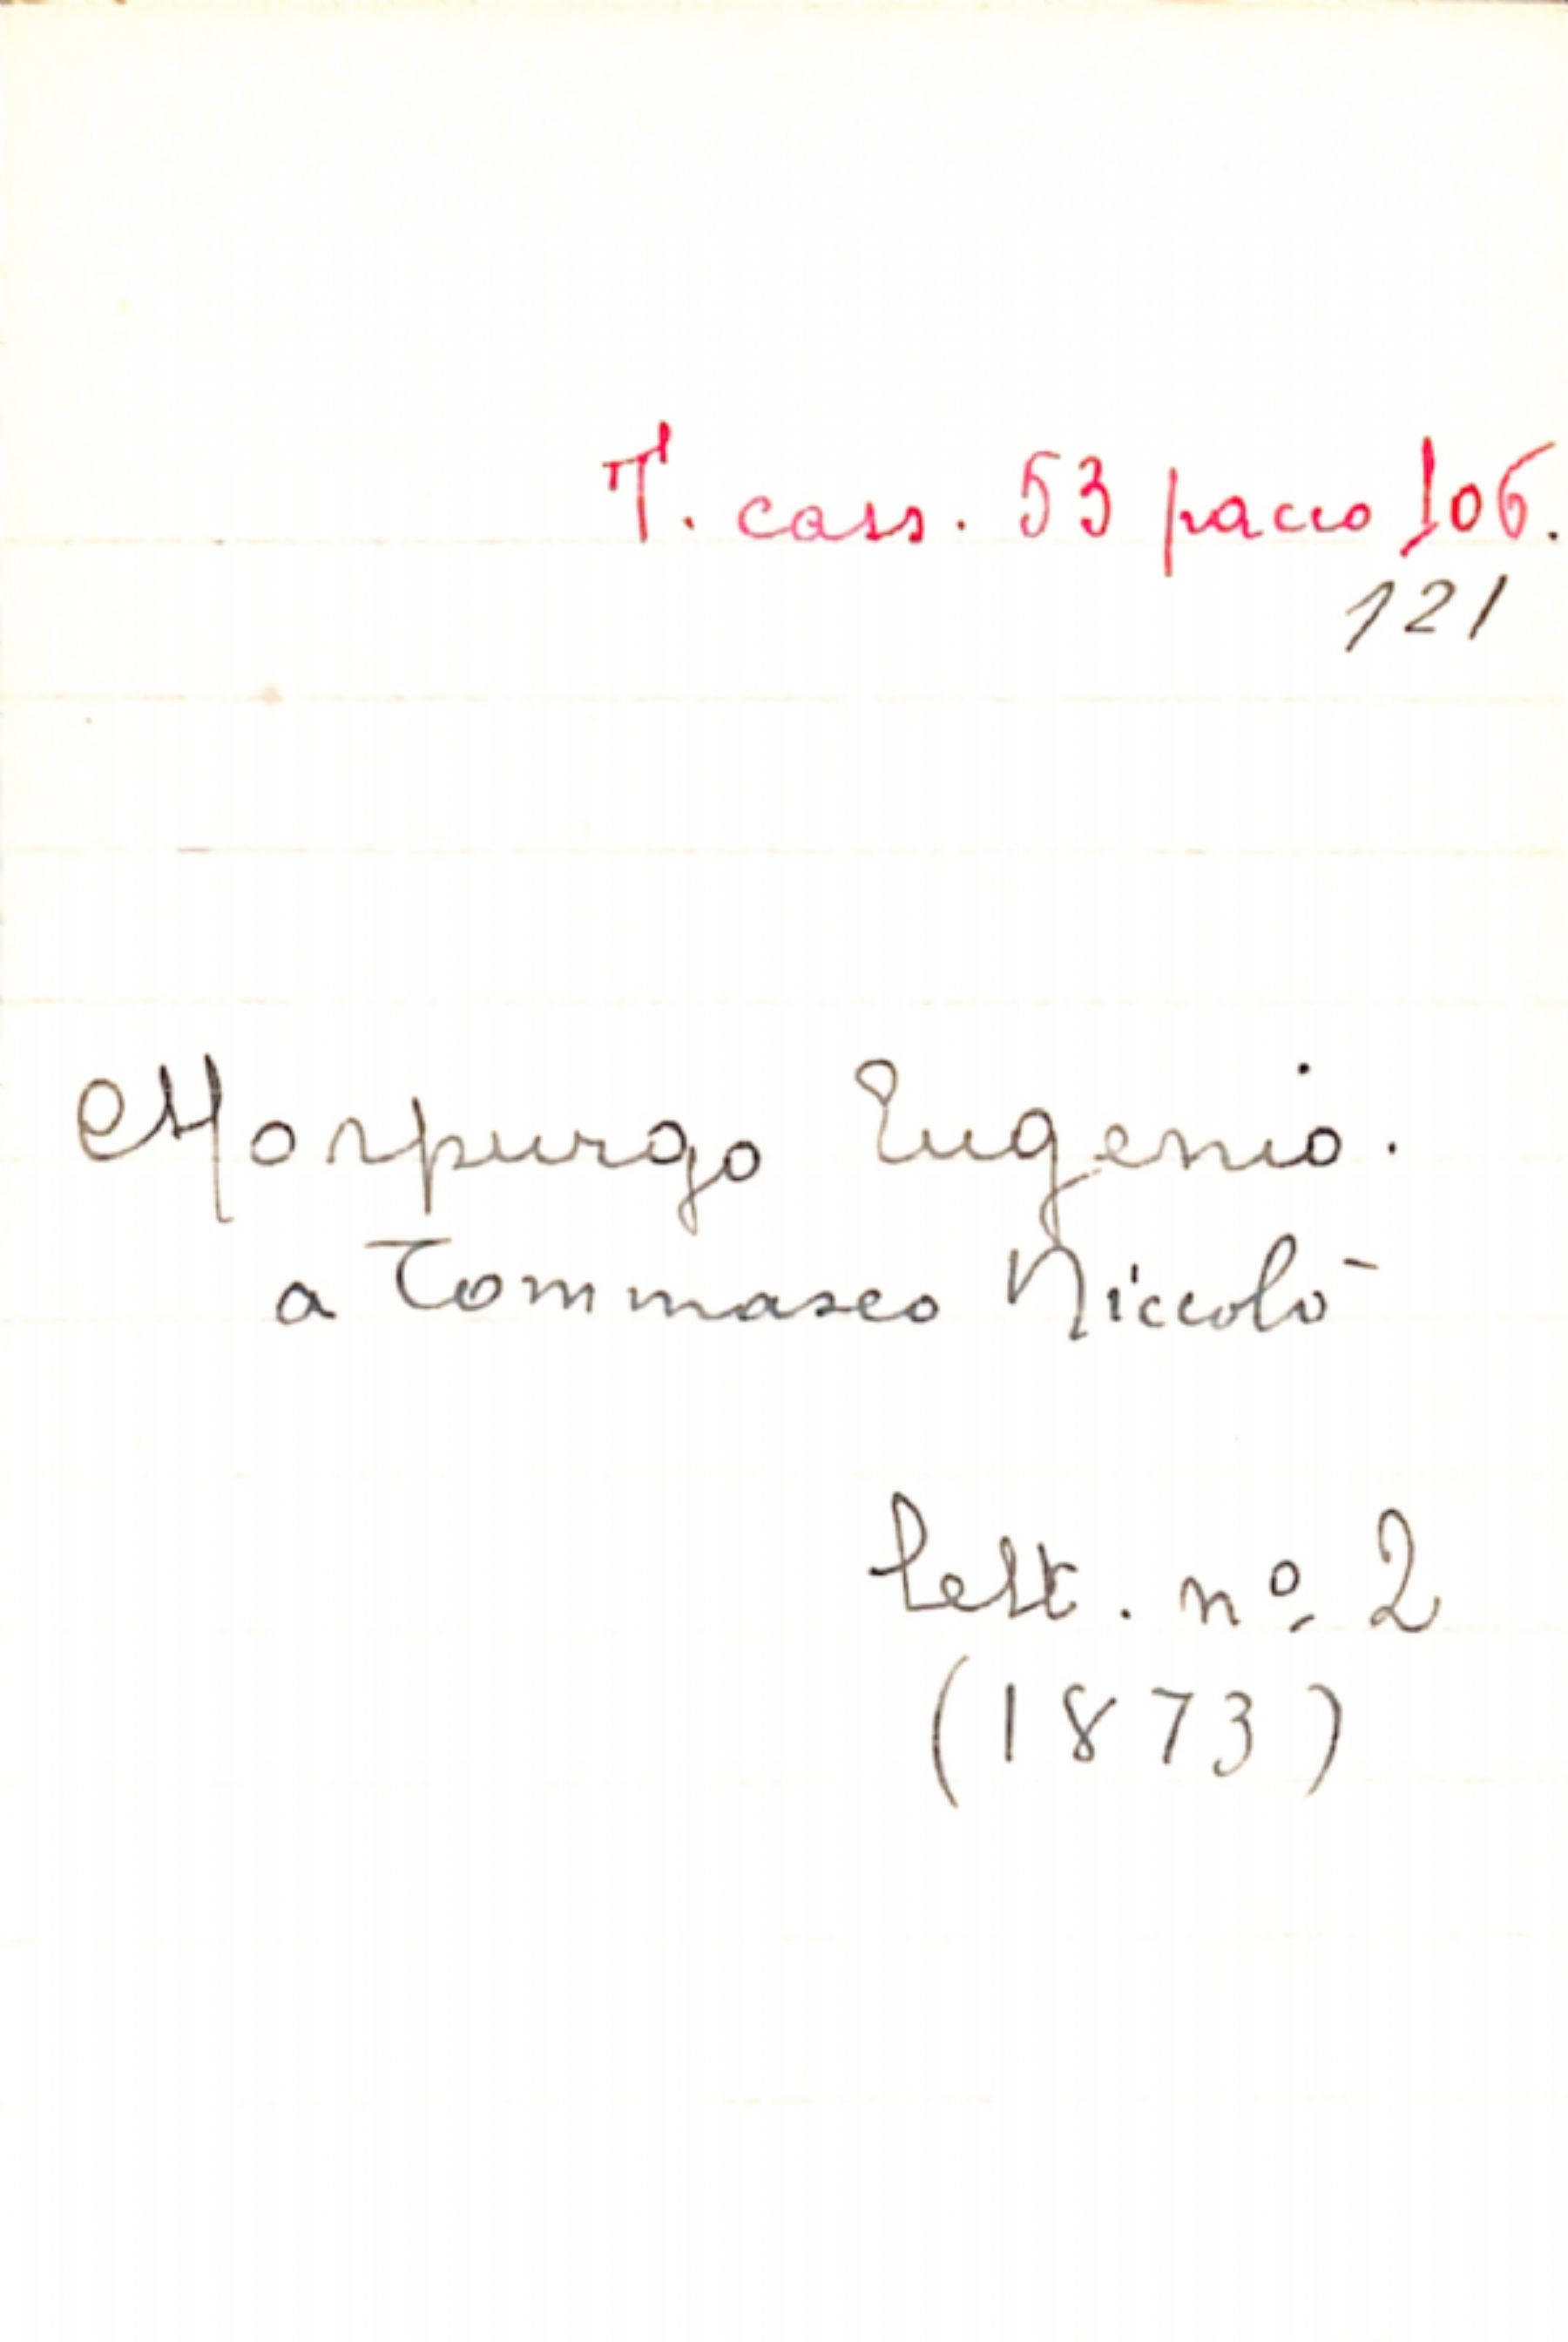 T. cass. 53 pacco 106.
121
Morpurgo Eugenio.
a Tommaseo Niccolò
lett. nº 2
(1873)